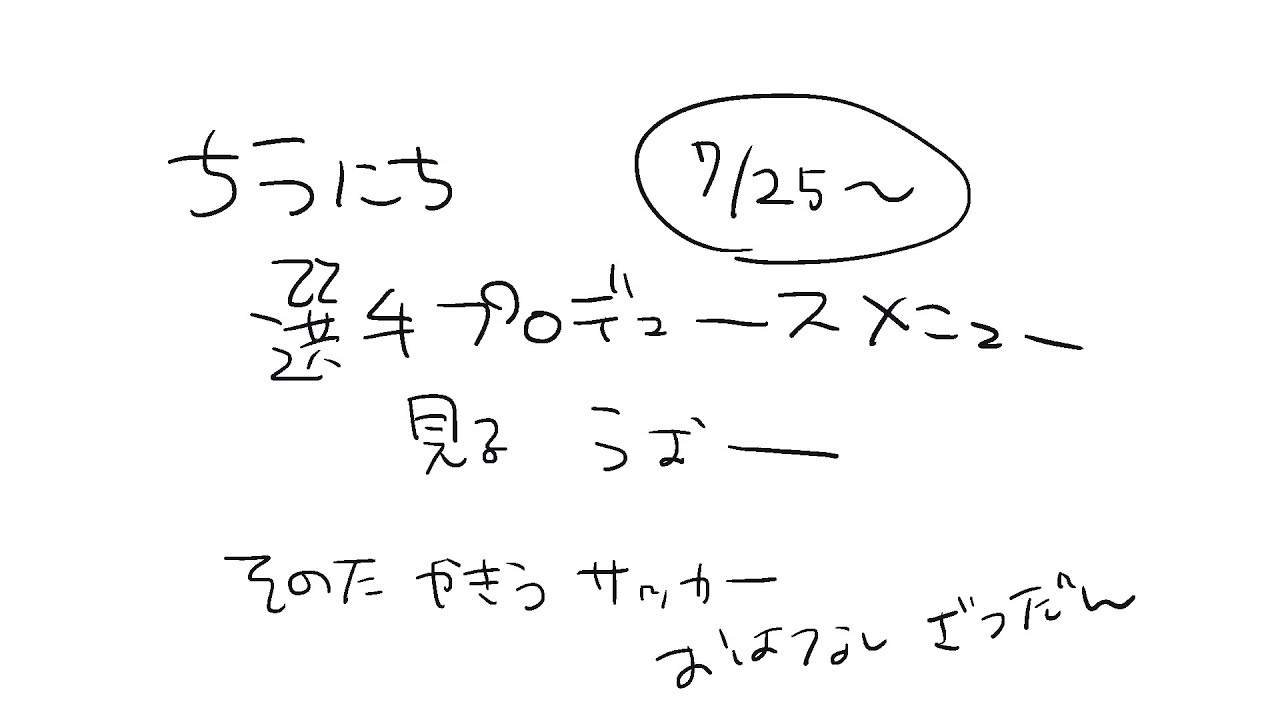 ちうにち 7/25～
選手プロデュースメニュー
見る うおー
そのた やきう サッカー
おはなし ざつだん